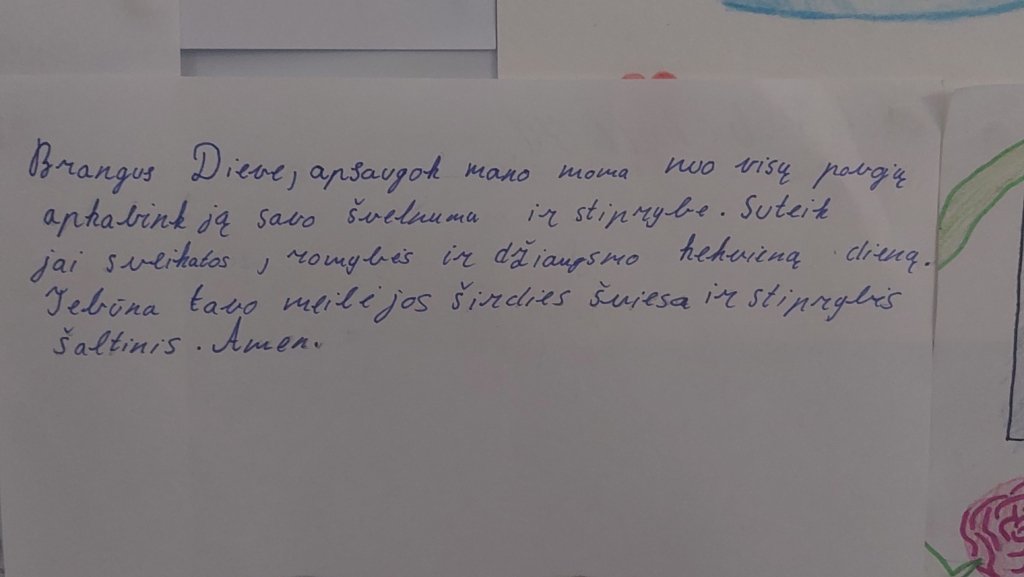 Brangus Dieve, apšaugok mano moma nuo visų pavgių
apkabink ją savo švelnuma ir stiprybe. Suteik
jai sveikatos, romybės ir džiaugsmo kekvieną dieną.
Tebūna tavo meilė jos širdies šviesa ir stiprybės
šaltinis. Amen.